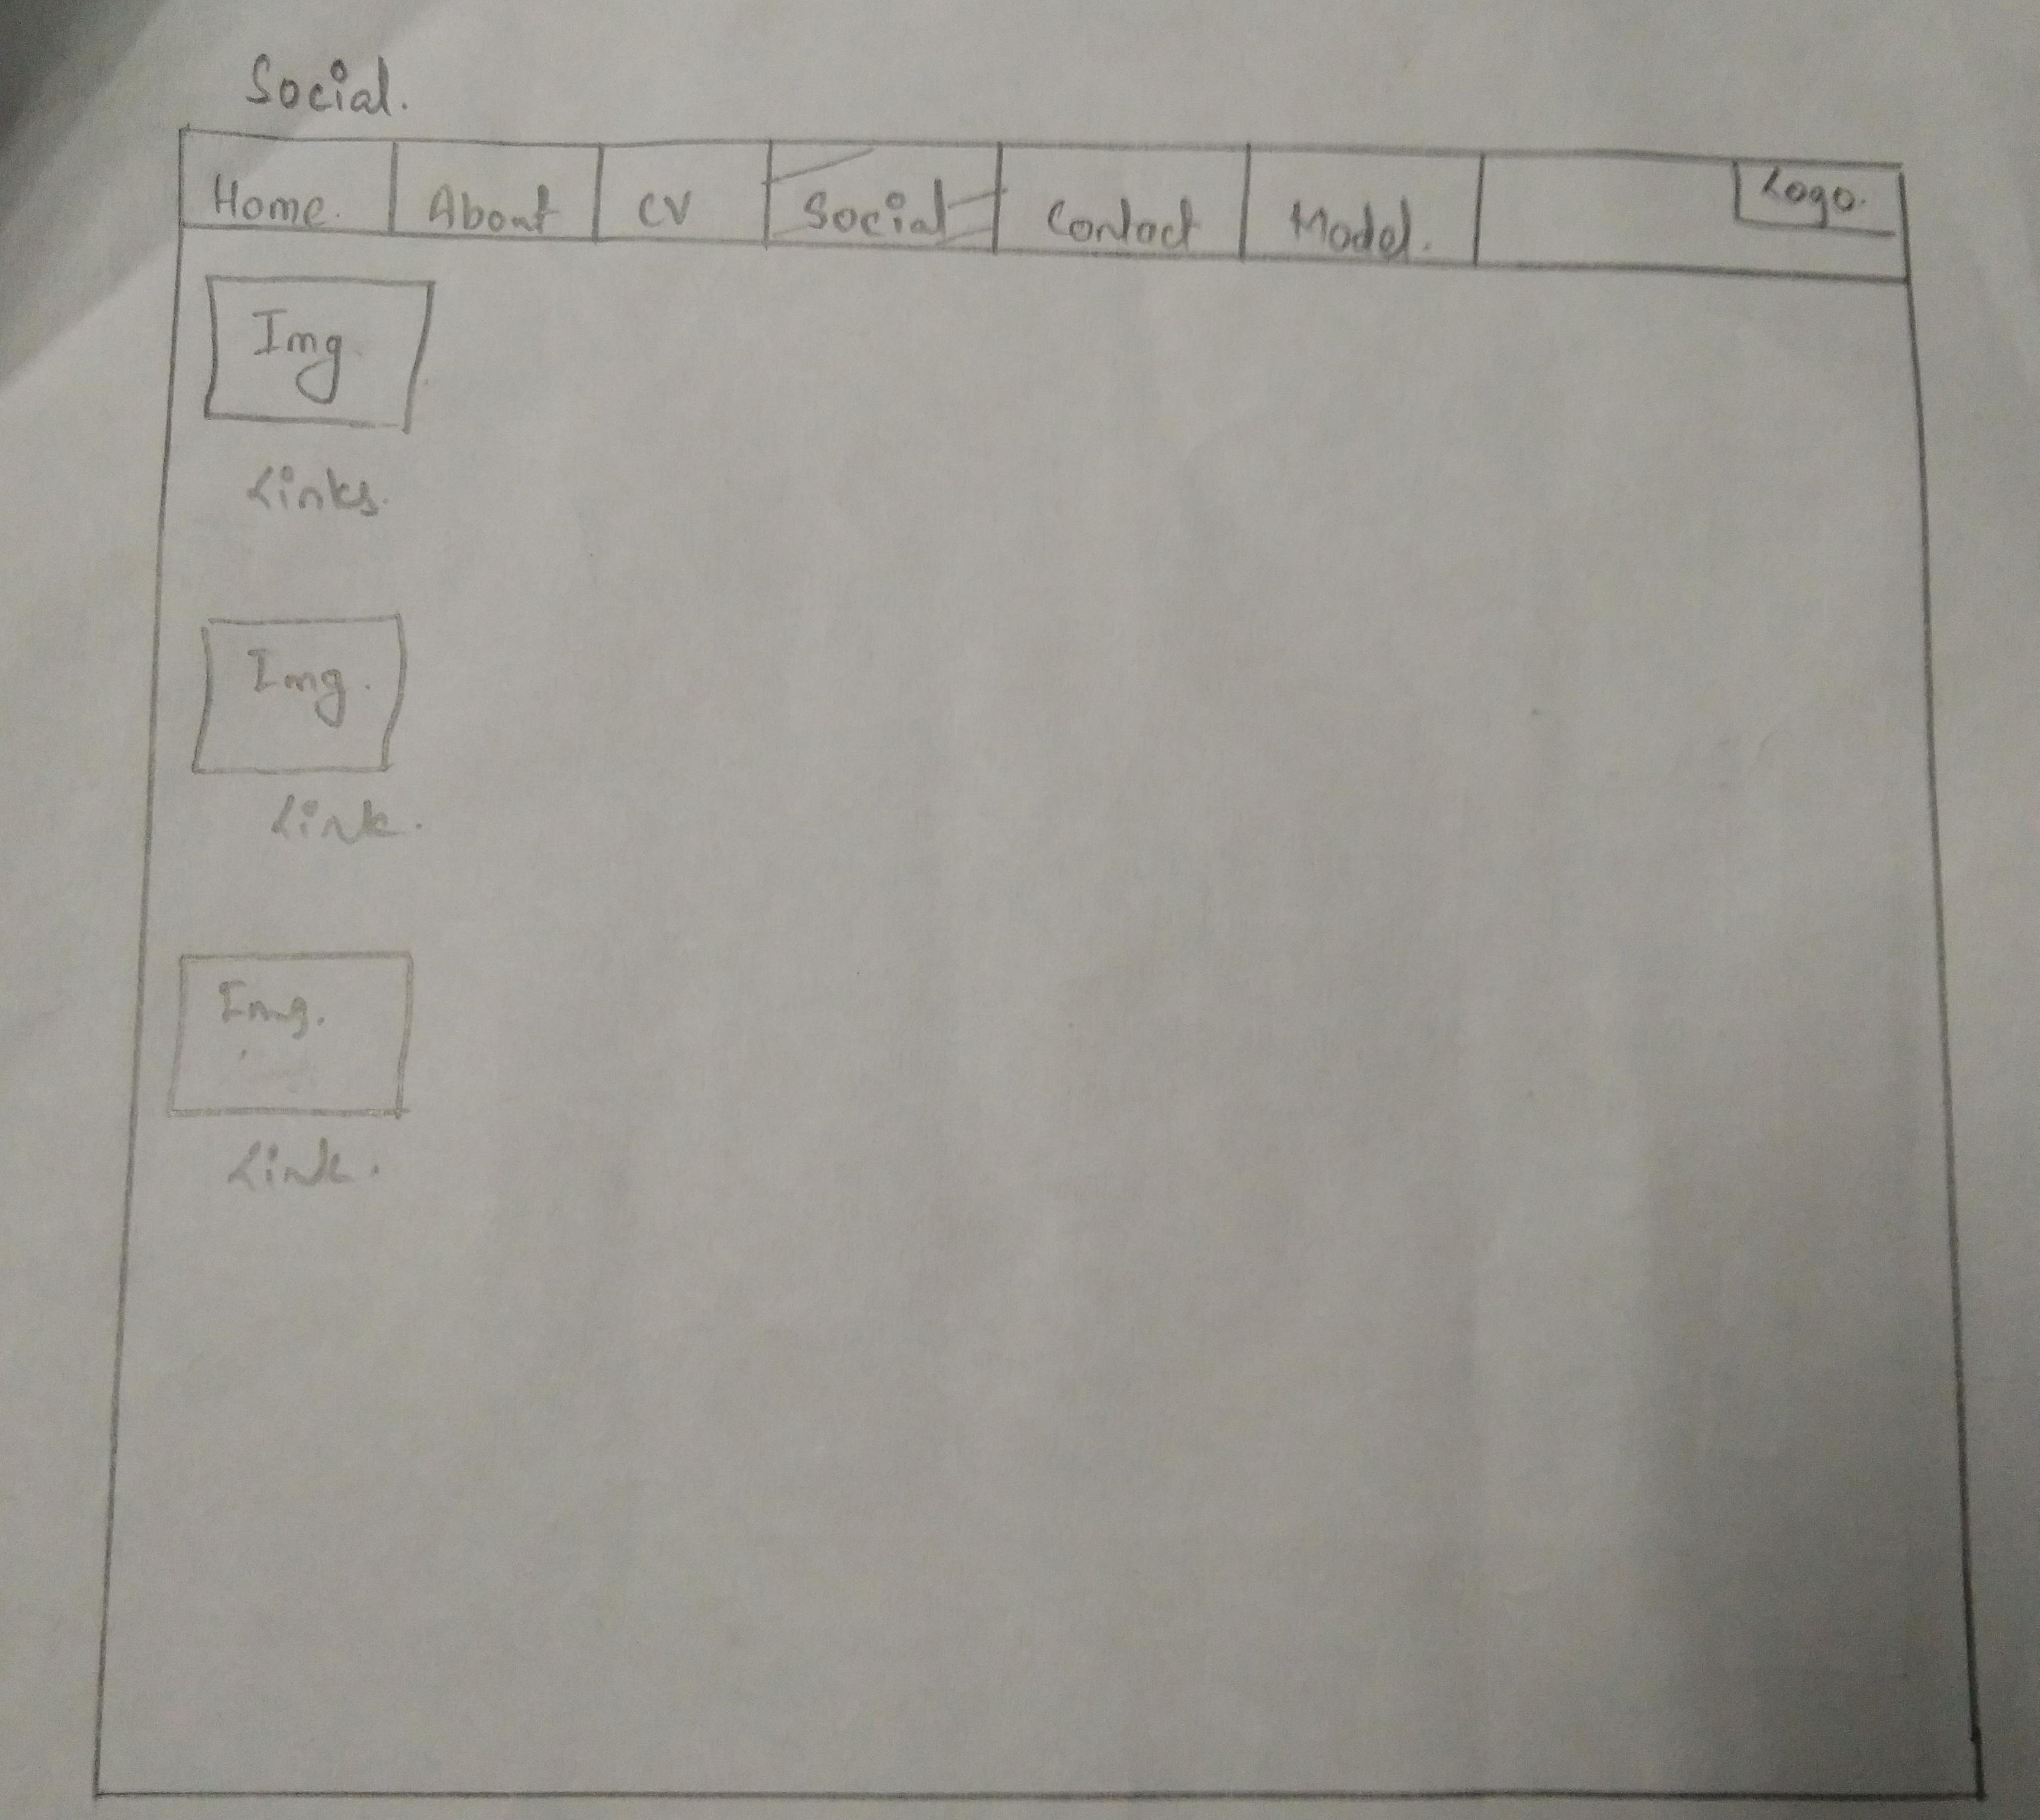 Social.
Home. About CV Social Contact Model. Logo.
Img.
Links.
Img.
Link.
Img.
Link.